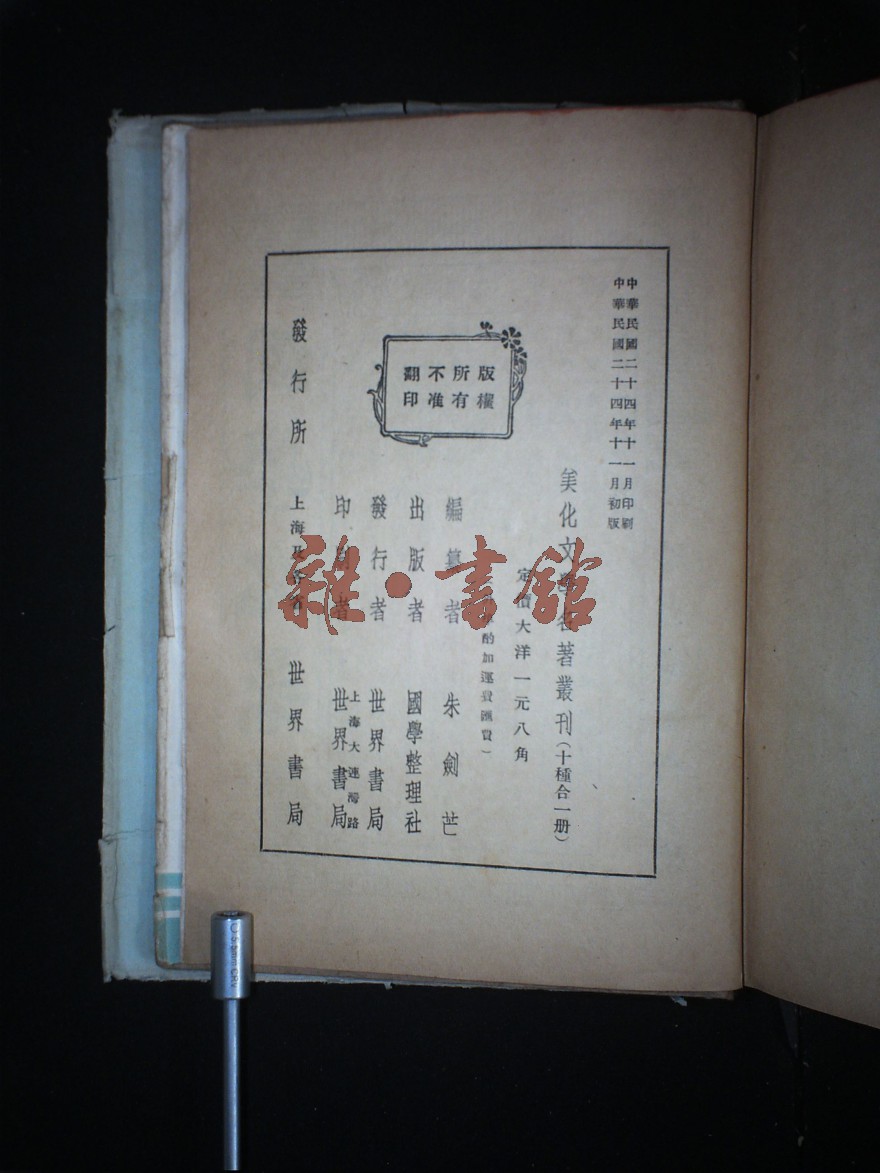 中華民國二十四年十一月印刷
中華民國二十四年十一月初版
美化文學名著叢刊(十種合一册)
定價大洋一元八角
酌加運費匯費)
版權
所有
不准
翻印
編纂者 朱劍芒
出版者 國學整理社
發行者 世界書局
上海大連灣路
印刷者 世界書局
發行所 上海及各省 世界書局
雜·書館
5.5mm CRV